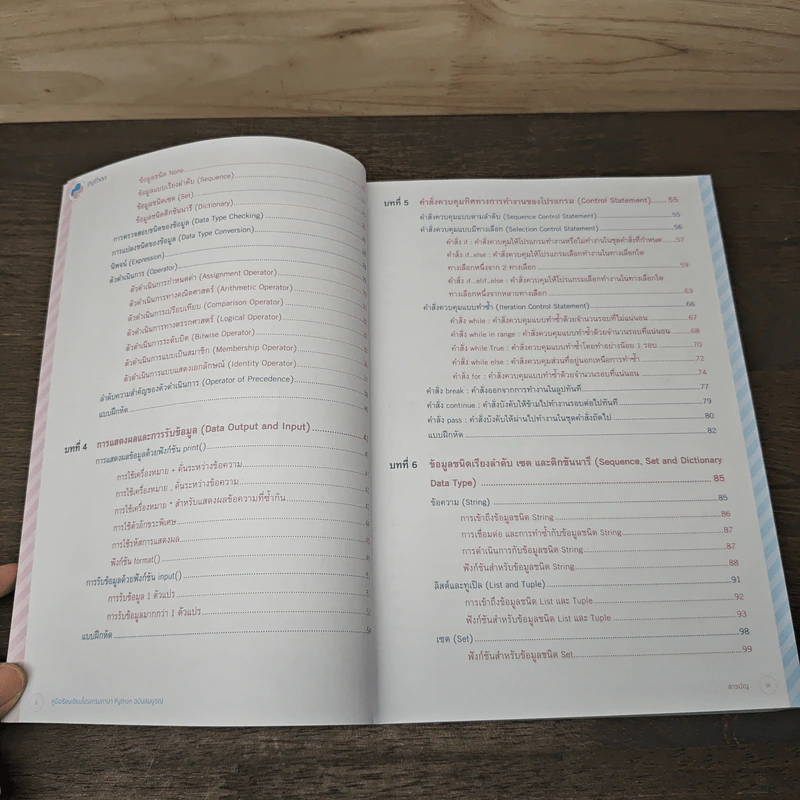 Python
ข้อมูลชนิด None
ข้อมูลแบบเรียงลำดับ (Sequence)
ข้อมูลชนิดเซต (Set)
ข้อมูลชนิดดิกชันนารี (Dictionary)
การตรวจสอบชนิดของข้อมูล (Data Type Checking)
การแปลงชนิดของข้อมูล (Data Type Conversion)
นิพจน์ (Expression)
ตัวดำเนินการ (Operator)
ตัวดำเนินการกำหนดค่า (Assignment Operator)
ตัวดำเนินการทางคณิตศาสตร์ (Arithmetic Operator)
ตัวดำเนินการเปรียบเทียบ (Comparison Operator)
ตัวดำเนินการทางตรรกศาสตร์ (Logical Operator)
ตัวดำเนินการระดับบิต (Bitwise Operator)
ตัวดำเนินการแบบเป็นสมาชิก (Membership Operator)
ตัวดำเนินการแบบแสดงเอกลักษณ์ (Identity Operator)
ลำดับความสำคัญของตัวดำเนินการ (Operator of Precedence)
แบบฝึกหัด
บทที่ 4 การแสดงผลและการรับข้อมูล (Data Output and Input)
การแสดงผลข้อมูลด้วยฟังก์ชัน print()
การใช้เครื่องหมาย + คั่นระหว่างข้อความ
การใช้เครื่องหมาย , คั่นระหว่างข้อความ
การใช้เครื่องหมาย * สำหรับแสดงผลข้อความที่ซ้ำกัน
การใช้ตัวอักขระพิเศษ
การใช้รหัสการแสดงผล
ฟังก์ชัน format()
การรับข้อมูลด้วยฟังก์ชัน input()
การรับข้อมูล 1 ตัวแปร
การรับข้อมูลมากกว่า 1 ตัวแปร
แบบฝึกหัด
คู่มือเรียนเขียนโปรแกรมภาษา Python ฉบับสมบูรณ์
บทที่ 5 คำสั่งควบคุมทิศทางการทำงานของโปรแกรม (Control Statement) 55
คำสั่งควบคุมแบบตามลำดับ (Sequence Control Statement) 55
คำสั่งควบคุมแบบมีทางเลือก (Selection Control Statement) 56
คำสั่ง if : คำสั่งควบคุมให้โปรแกรมทำงานหรือไม่ทำงานในชุดคำสั่งที่กำหนด 57
คำสั่ง if...else : คำสั่งควบคุมให้โปรแกรมเลือกทำงานในทางเลือกใด
ทางเลือกหนึ่งจาก 2 ทางเลือก 59
คำสั่ง if...elif...else : คำสั่งควบคุมให้โปรแกรมเลือกทำงานในทางเลือกใด
ทางเลือกหนึ่งจากหลายทางเลือก 63
คำสั่งควบคุมแบบทำซ้ำ (Iteration Control Statement) 66
คำสั่ง while : คำสั่งควบคุมแบบทำซ้ำด้วยจำนวนรอบที่ไม่แน่นอน 67
คำสั่ง while in range : คำสั่งควบคุมแบบทำซ้ำด้วยจำนวนรอบที่แน่นอน 68
คำสั่ง while True : คำสั่งควบคุมแบบทำซ้ำโดยทำอย่างน้อย 1 รอบ 70
คำสั่ง while else : คำสั่งควบคุมส่วนที่อยู่นอกเหนือการทำซ้ำ 72
คำสั่ง for : คำสั่งควบคุมแบบทำซ้ำด้วยจำนวนรอบที่แน่นอน 74
คำสั่ง break : คำสั่งออกจากการทำงานในลูปทันที 77
คำสั่ง continue : คำสั่งบังคับให้ข้ามไปทำงานรอบต่อไปทันที 79
คำสั่ง pass : คำสั่งบังคับให้ผ่านไปทำงานในชุดคำสั่งถัดไป 80
แบบฝึกหัด 82
บทที่ 6 ข้อมูลชนิดเรียงลำดับ เซต และดิกชันนารี (Sequence, Set and Dictionary
Data Type) 85
ข้อความ (String) 85
การเข้าถึงข้อมูลชนิด String 86
การเชื่อมต่อ และการทำซ้ำกับข้อมูลชนิด String 87
การดำเนินการกับข้อมูลชนิด String 87
ฟังก์ชันสำหรับข้อมูลชนิด String 88
ลิสต์และทูเปิล (List and Tuple) 91
การเข้าถึงข้อมูลชนิด List และ Tuple 92
ฟังก์ชันสำหรับข้อมูลชนิด List และ Tuple 93
เซต (Set) 98
ฟังก์ชันสำหรับข้อมูลชนิด Set 99
สารบัญ